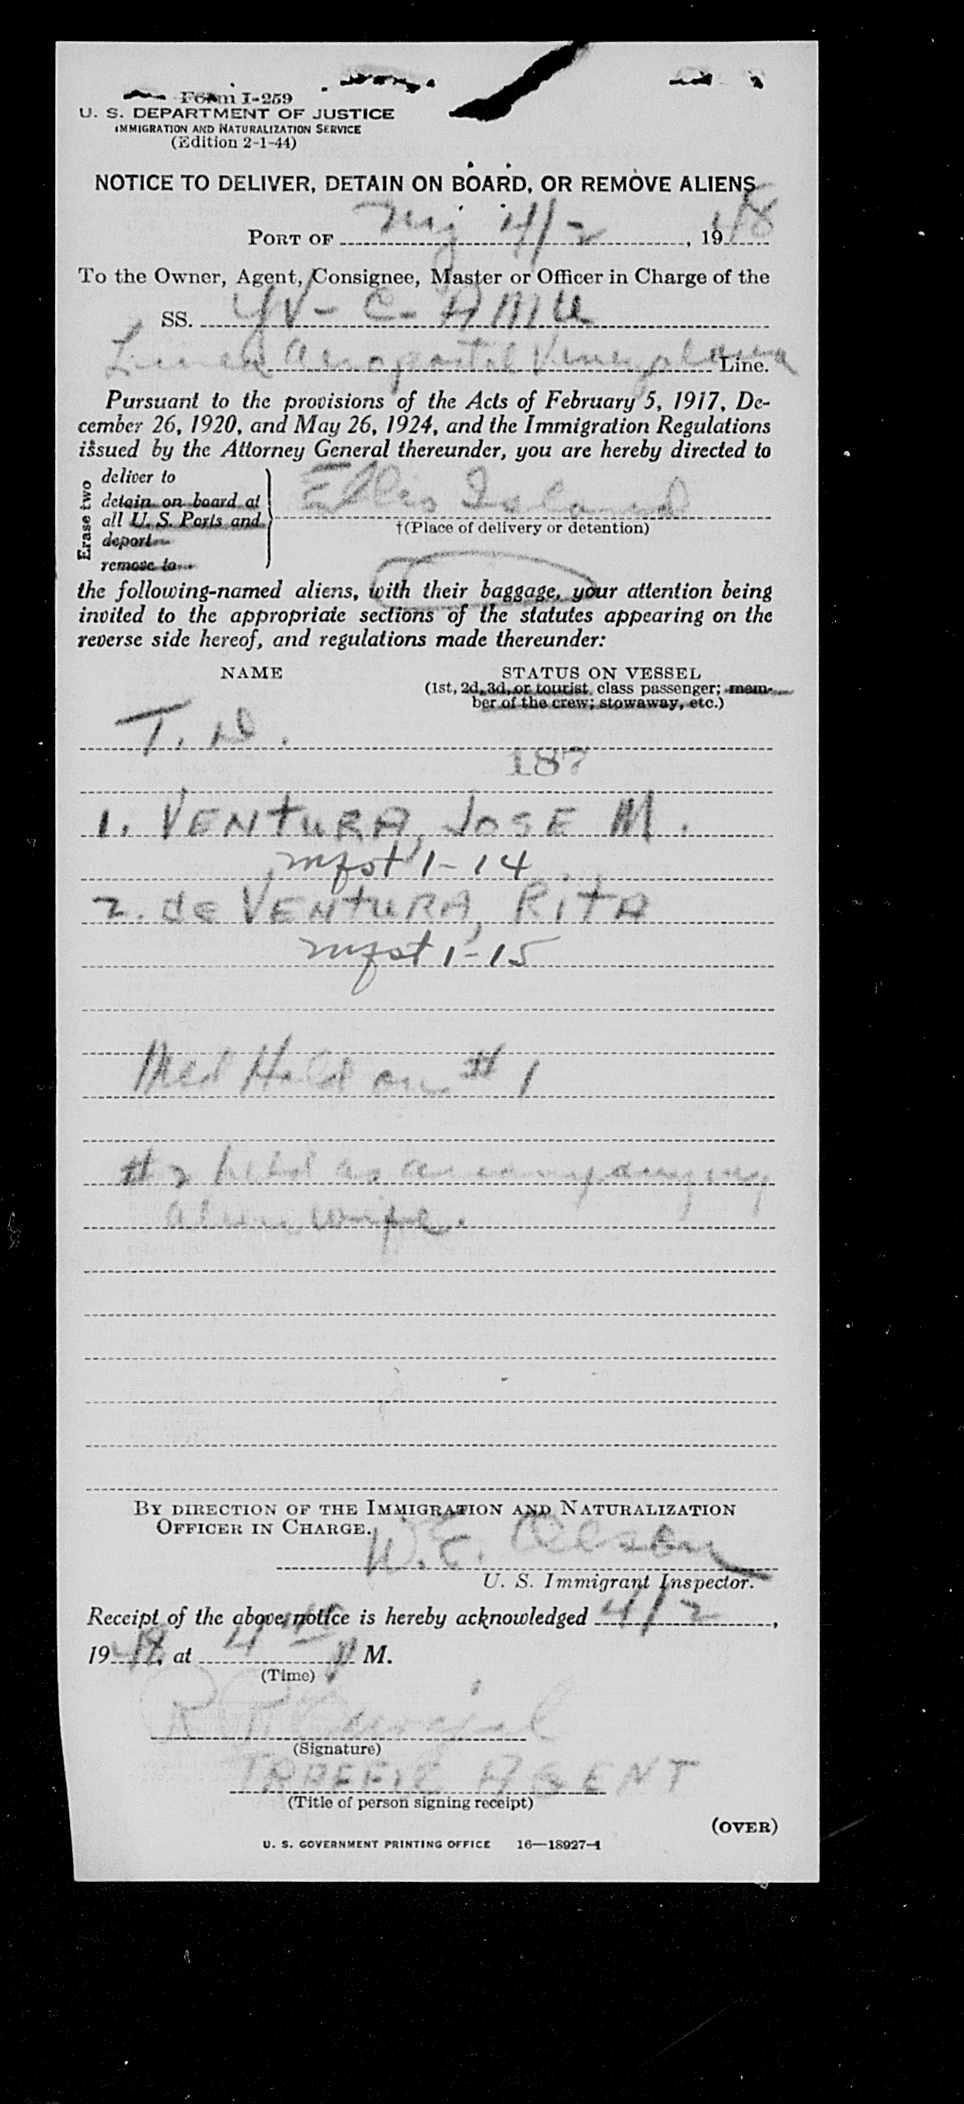 Form I-259
U. S. DEPARTMENT OF JUSTICE
IMMIGRATION AND NATURALIZATION SERVICE
(Edition 2-1-44)
NOTICE TO DELIVER, DETAIN ON BOARD, OR REMOVE ALIENS
PORT OF 4/2, 1948
To the Owner, Agent, Consignee, Master or Officer in Charge of the
SS. YV-C-AMU
Linea Aeropostal Venezolana Line.
Pursuant to the provisions of the Acts of February 5, 1917, De-
cember 26, 1920, and May 26, 1924, and the Immigration Regulations
issued by the Attorney General thereunder, you are hereby directed to
Erase two
deliver to
detain on board at
all U. S. Ports and
deport
remove to
Ellis Island
†(Place of delivery or detention)
the following-named aliens, with their baggage, your attention being
invited to the appropriate sections of the statutes appearing on the
reverse side hereof, and regulations made thereunder:
NAME STATUS ON VESSEL
(1st, 2d, 3d, or tourist class passenger; mem-
ber of the crew; stowaway, etc.)
T. D.
187
1. VENTURA, JOSE M.
mfst 1-14
2. de VENTURA, RITA
mfst 1-15
Med Held on # 1
# 2 held as accompanying
alien wife.
BY DIRECTION OF THE IMMIGRATION AND NATURALIZATION
OFFICER IN CHARGE.
W. E. Olson
U. S. Immigrant Inspector.
Receipt of the above notice is hereby acknowledged 4/2,
1948, at 4 P M.
(Time)
(Signature)
TRAFFIC AGENT
(Title of person signing receipt)
(OVER)
U. S. GOVERNMENT PRINTING OFFICE 16—18927-1